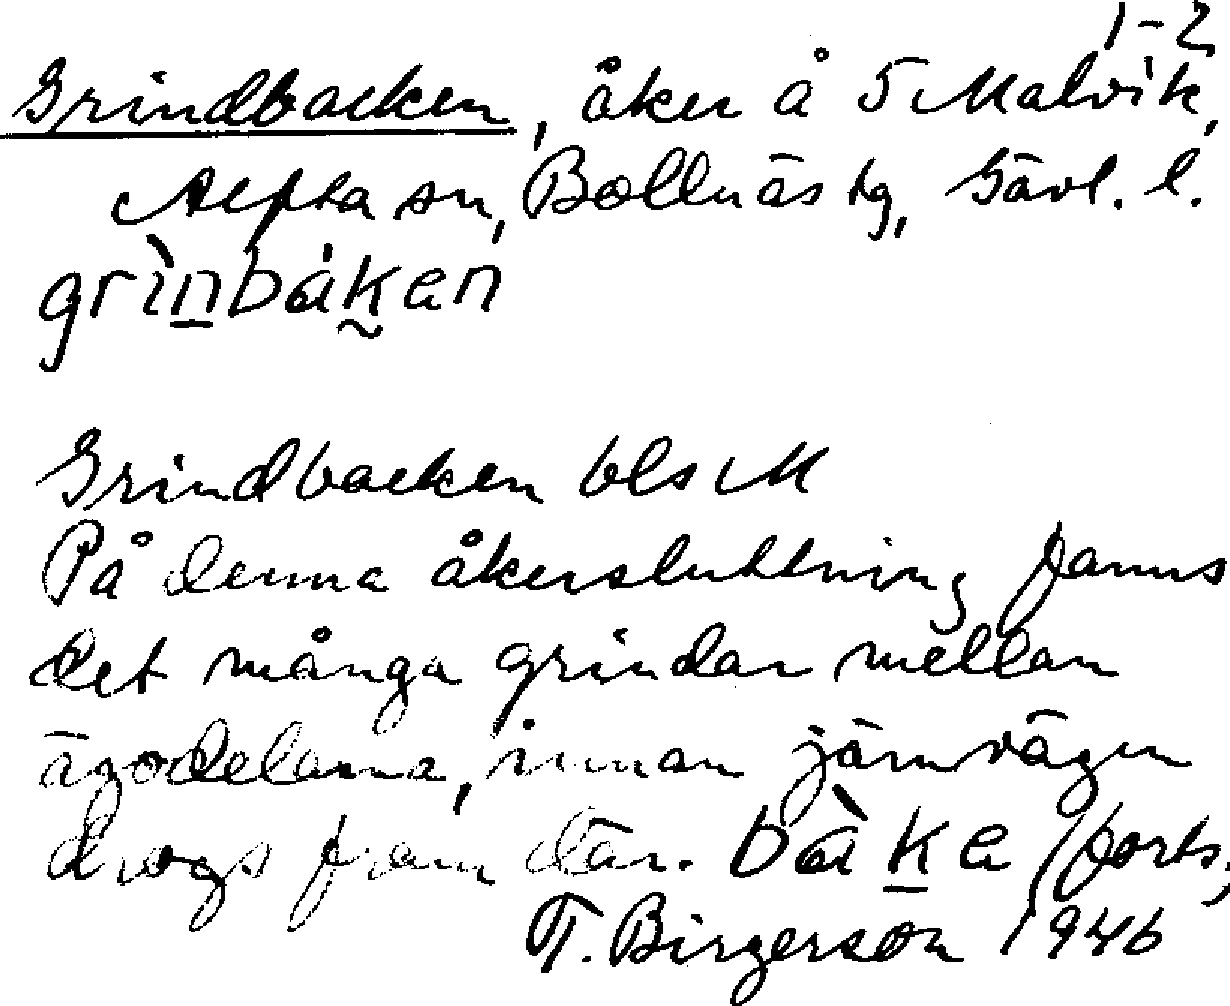 1-2
Grindbacken, åker å 5 Malvik,
Alfta sn, Bollnäs tg, Gävl. l.
grìn̲bák̰en
Grindbacken bls M
På denna åkersluttning fanns
det många grindar mellan
ägodelarna, innan järnvägen
drogs fram där. bàk̲e /forts,
T. Birgerson 1946